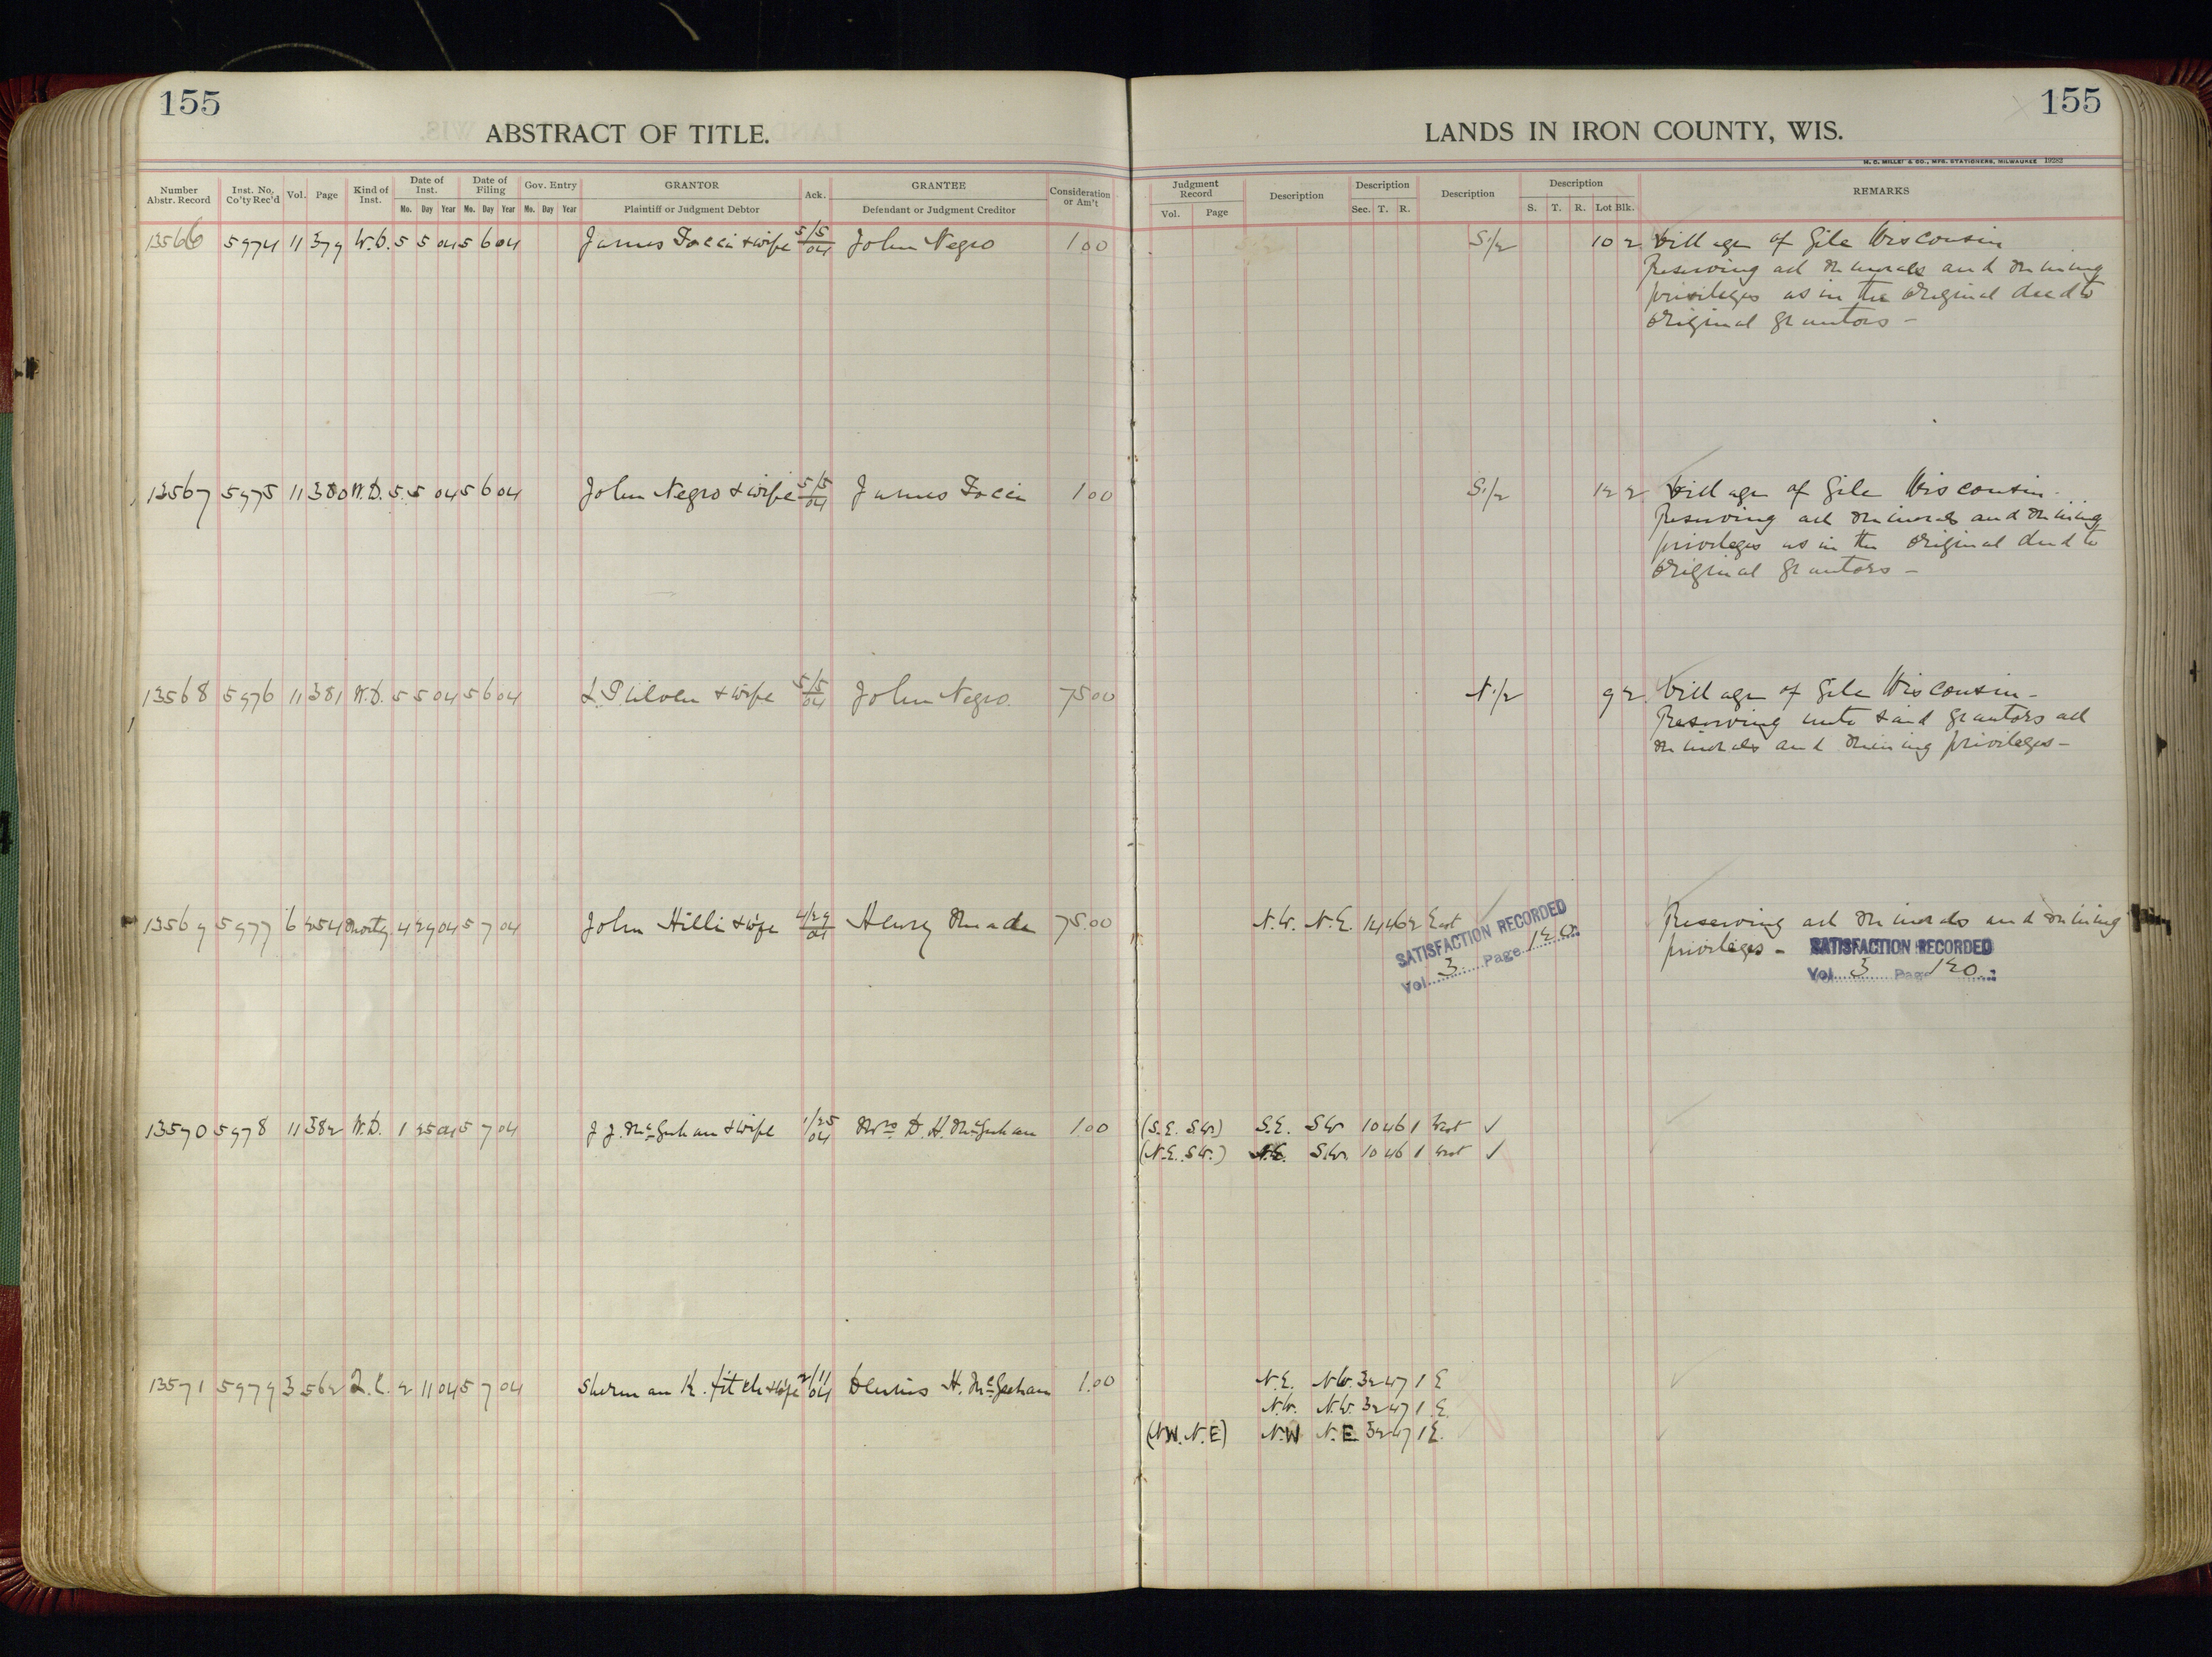 155
155
ABSTRACT OF TITLE.
LANDS IN IRON COUNTY, WIS.
M. C. MILLER & CO., MFG. STATIONERS, MILWAUKEE
Number Abstr. Record Inst. No. Co'ty Rec'd Vol. Page Kind of Inst. Date of Inst. Mo. Day Year Date of Filing Mo. Day Year Gov. Entry Mo. Day Year GRANTOR Plaintiff or Judgment Debtor Ack. GRANTEE Defendant or Judgment Creditor Consideration or Am't
Judgment Record Vol. Page Description Description Sec. T. R. Description Description S. T. R. Lot Blk. REMARKS
13566 5974 11 379 W.D. 5 5 04 5 6 04 James & wife 5/5 04 John Negro 1.00 S.1/2 10 2 Village of Gile Wisconsin
Reserving all minerals and mining
privileges as in the original deed to
original grantors -
13567 5975 11 380 W.D. 5 5 04 5 6 04 John Negro & wife 5/5 04 James 1.00 S.1/2 12 2 Village of Gile Wisconsin.
Reserving all minerals and mining
privileges as in the original deed to
original grantors -
13568 5976 11 381 W.D. 5 5 04 5 6 04 & wife 5/5 04 John Negro. 75.00 N.1/2 9 2 Village of Gile Wisconsin -
Reserving unto said grantors all
minerals and mining privileges -
13569 5977 6 254 Mortg 4 29 04 5 7 04 John Hilli & wife 4/29 04 Henry Meade 75.00 N.W. N.E. 14 46 2 East Reserving all minerals and mining
privileges -
SATISFACTION RECORDED
Vol. 3 Page 120
SATISFACTION RECORDED
Vol. 3 Page 120
13570 5978 11 382 W.D. 1 25 04 5 7 04 J. J. McGeehan & wife 1/25 04 Mrs D. H. McGeehan 1.00 (S.E. S.W.) S.E. S.W. 10 46 1 West ✓
(N.E. S.W.) N.E. S.W. 10 46 1 West ✓
13571 5979 3 562 Q.C. 2 11 04 5 7 04 Sherman K. Fitch & wife 2/11 04 Dennis H. McGeehan 1.00 N.E. N.W. 32 47 1 E
N.W. N.W. 32 47 1 E.
(N.W. N.E) N.W N.E 32 47 1 E.